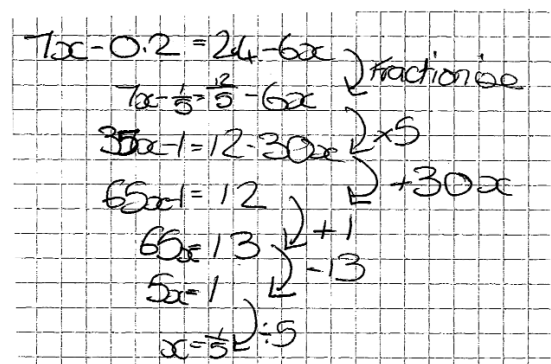 7x - 0.2 = 2.4 - 6x
fractionise
7x - 1/5 = 12/5 - 6x
×5
35x - 1 = 12 - 30x
+30x
65x - 1 = 12
+1
65x = 13
÷13
5x = 1
÷5
x = 1/5